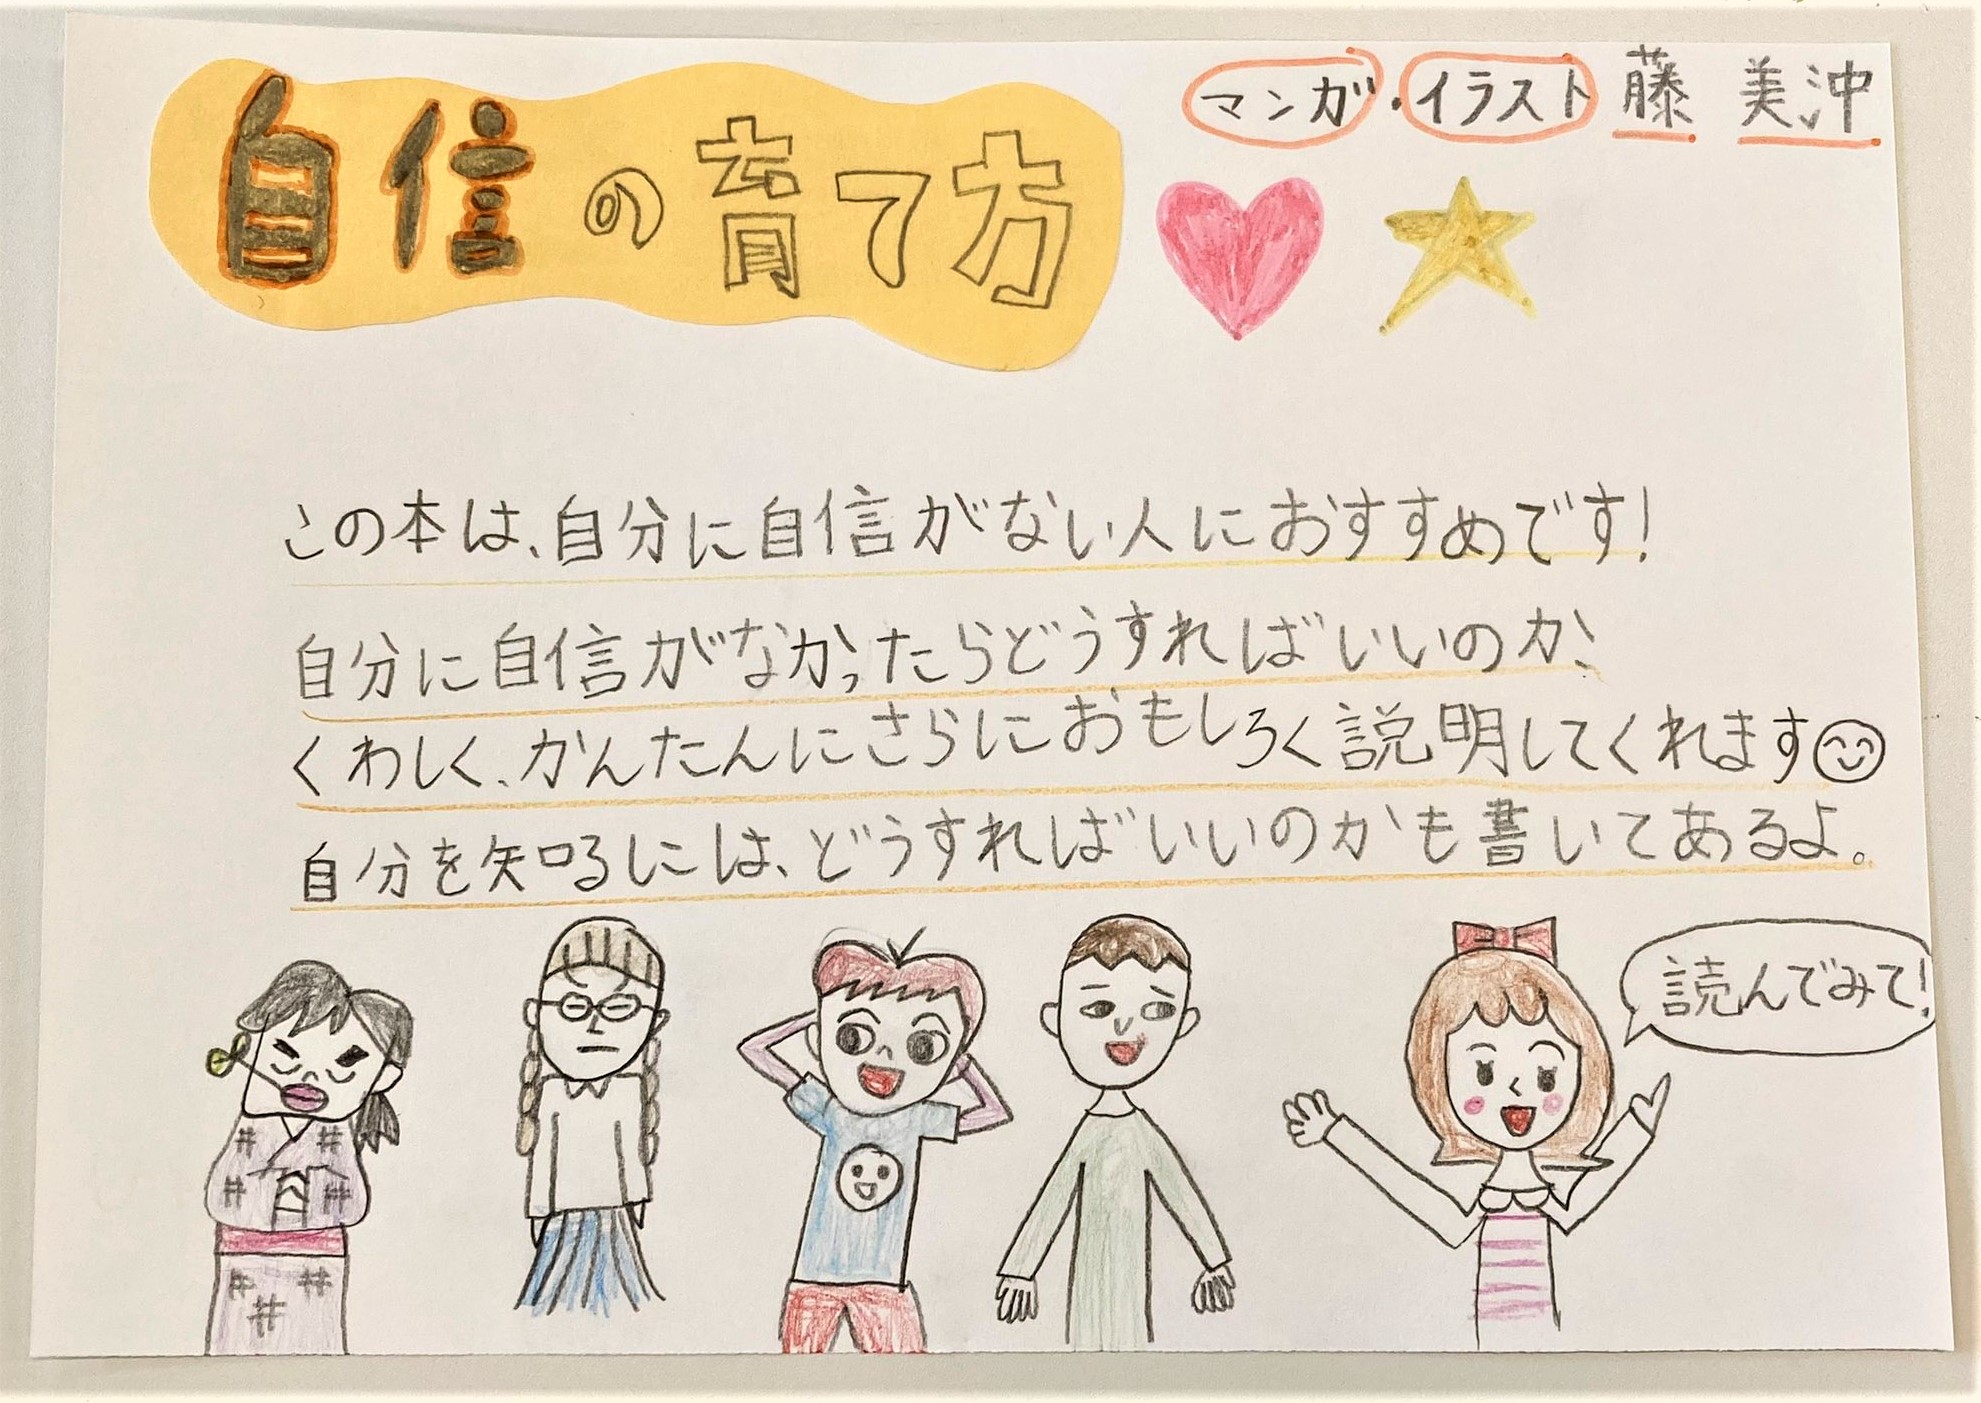 自信の育て方
マンガ・イラスト 藤 美沖
この本は、自分に自信がない人におすすめです!
自分に自信がなかったらどうすればいいのか、
くわしく、かんたんにさらにおもしろく説明してくれます😊
自分を知るには、どうすればいいのかも書いてあるよ。
読んでみて!